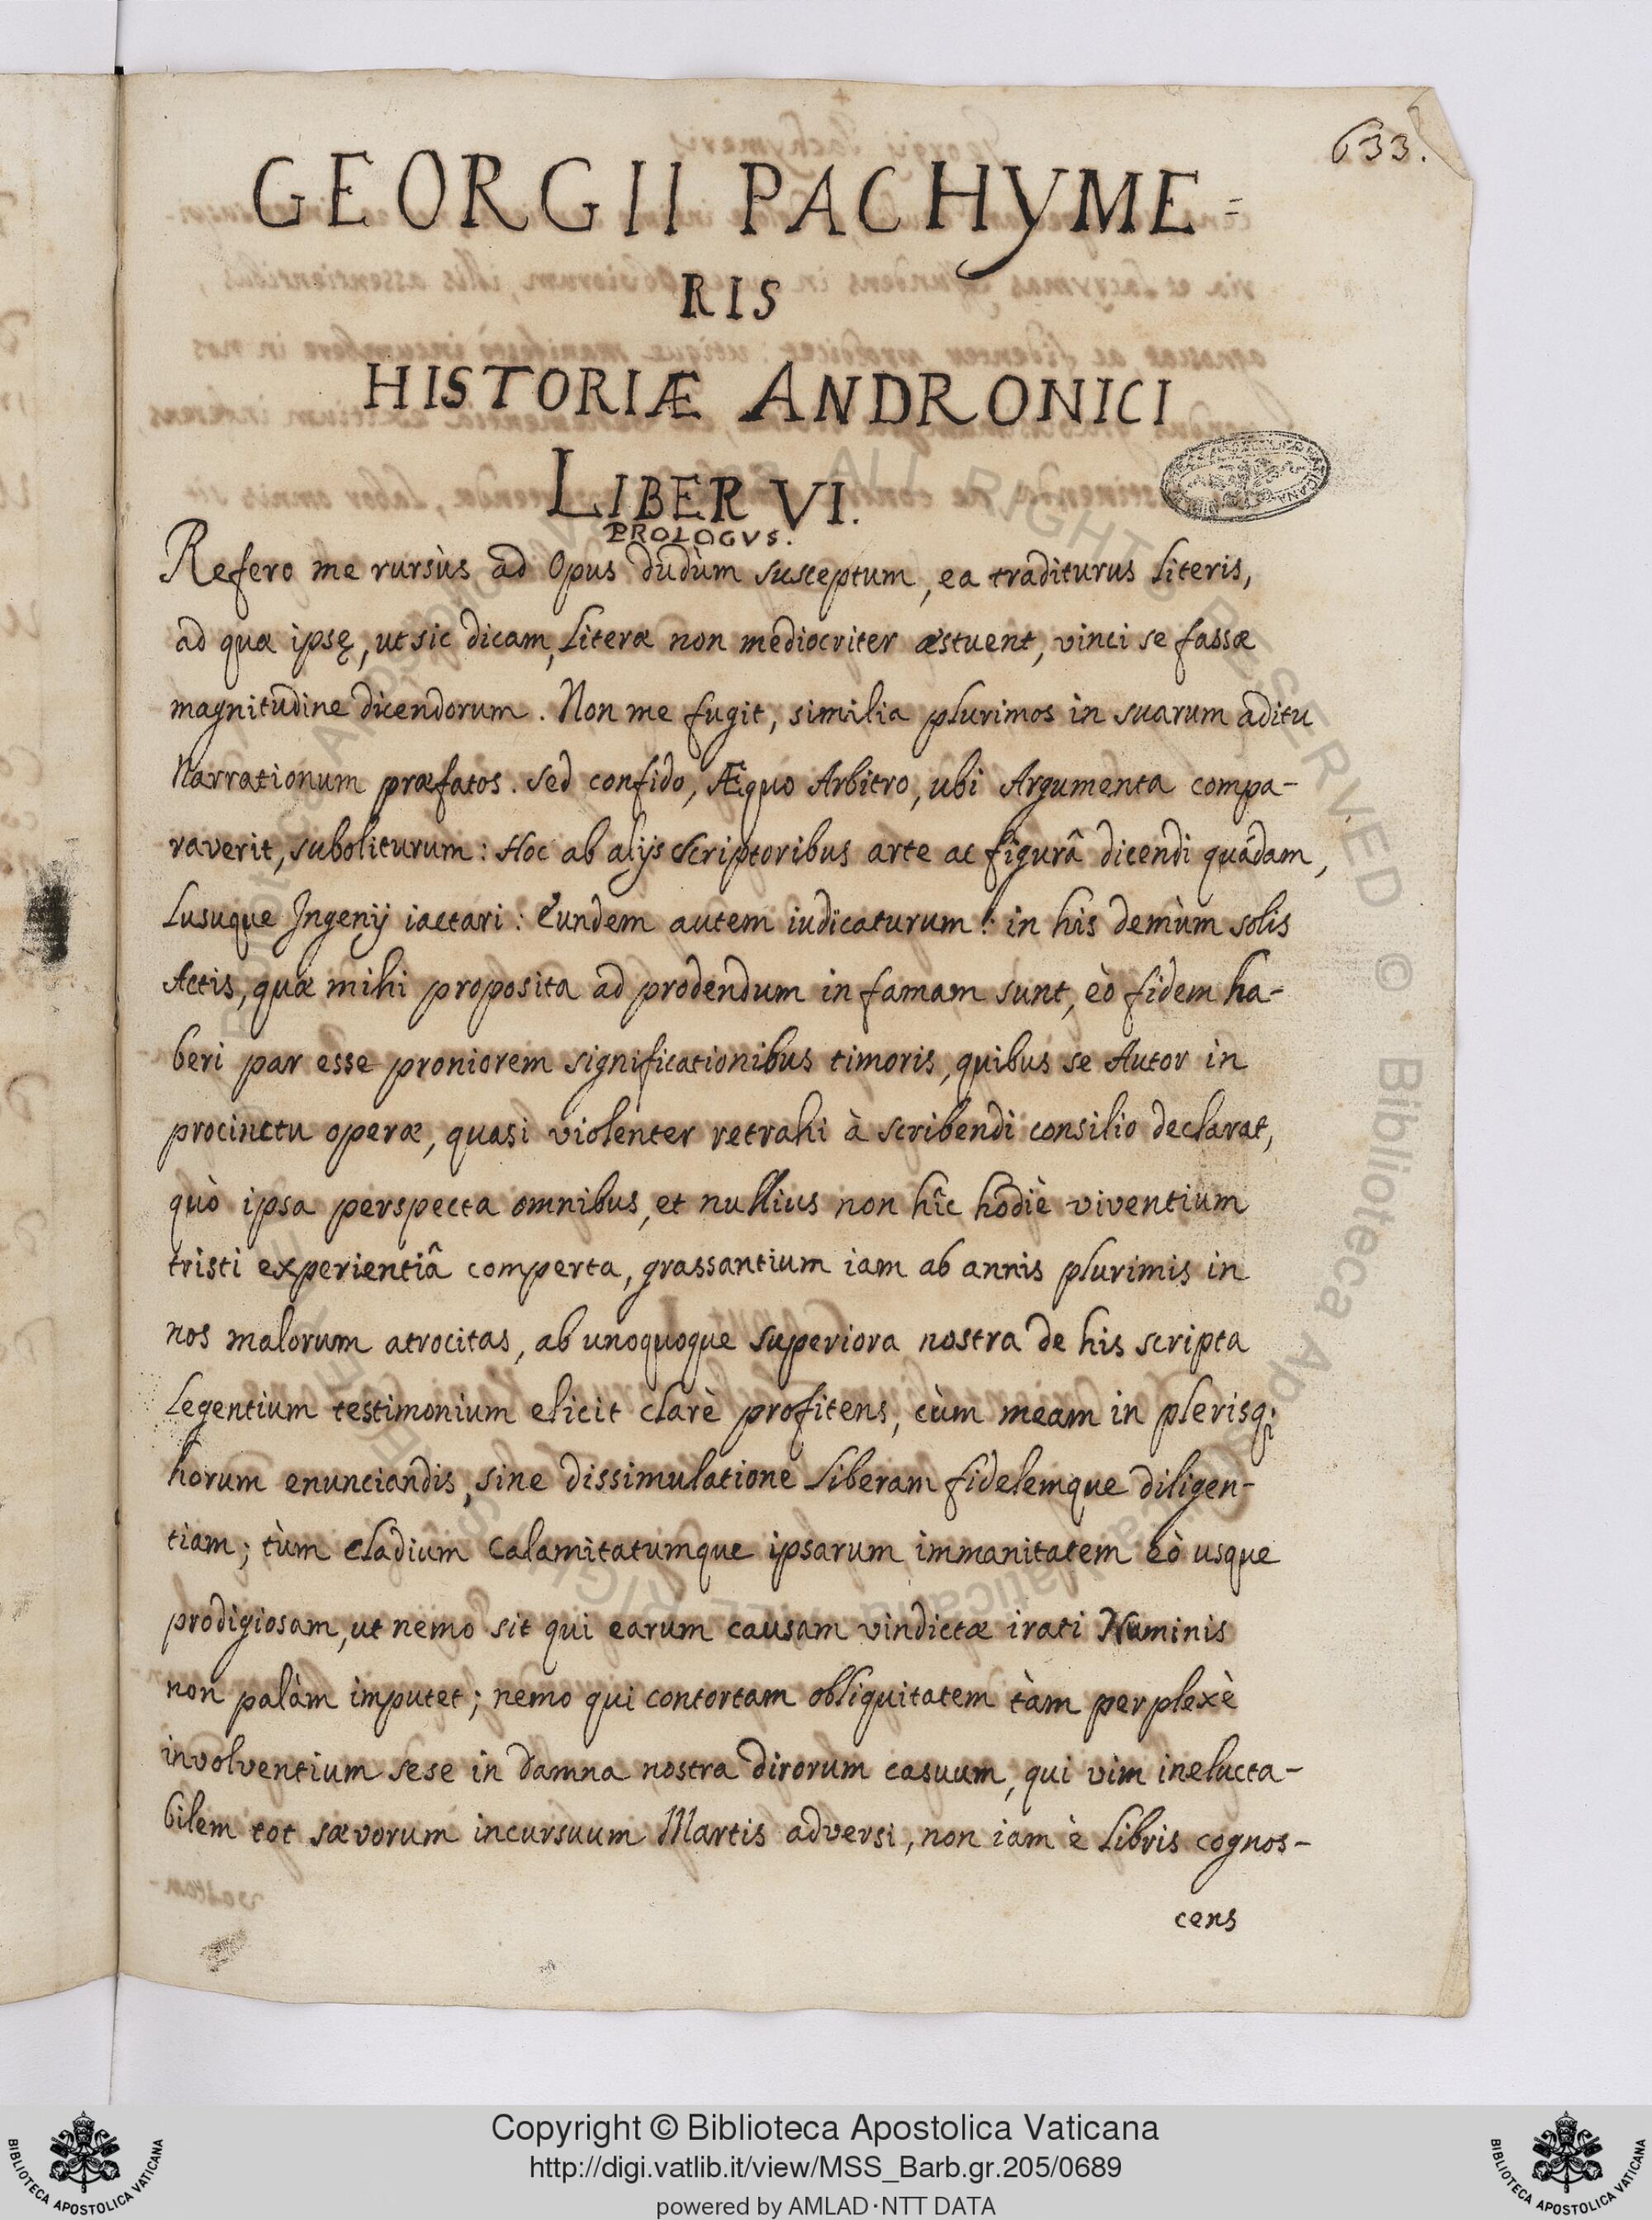 633.
GEORGII PACHYME=
RIS
HISTORIÆ ANDRONICI
LIBER VI.
PROLOGVS.
Refero me rursùs ad Opus dudùm susceptum, ea traditurus literis,
ad quæ ipsę, ut sic dicam, Literæ non mediocriter æstuent, vinci se fassæ
magnitudine dicendorum. Non me fugit, similia plurimos in suarum aditu
Narrationum præfatos. Sed confido, Æquo Arbitro, ubi Argumenta compa-
raverit, suboliturum: Hoc ab alijs Scriptoribus arte ac figurâ dicendi quâdam,
Lusuque Ingenij iactari: Eundem autem iudicaturum: in his demùm solis
Actis, quæ mihi proposita ad prodendum in famam sunt, eò fidem ha-
beri par esse proniorem significationibus timoris, quibus se Autor in
procinctu operæ, quasi violenter retrahi à scribendi consilio declarat,
quò ipsa perspecta omnibus, et nullius non hîc hodiè viventium
tristi experientiâ comperta, grassantium iam ab annis plurimis in
nos malorum atrocitas, ab unoquoque superiora nostra de his scripta
Legentium testimonium elicit clarè profitens, cùm meam in plerisq;
horum enunciandis, sine dissimulatione liberam fidelemque diligen-
tiam; tùm cladium calamitatumque ipsarum immanitatem eò usque
prodigiosam, ut nemo sit qui earum causam vindictæ irati Numinis
non palàm imputet; nemo qui contortam obliquitatem tàm perplexè
involventium sese in damna nostra dirorum casuum, qui vim inelucta-
bilem tot sævorum incursuum Martis adversi, non iam è Libris cognos-
cens
Copyright © Biblioteca Apostolica Vaticana
http://digi.vatlib.it/view/MSS_Barb.gr.205/0689
powered by AMLAD·NTT DATA
BIBLIOTECA APOSTOLICA VATICANA
BIBLIOTECA APOSTOLICA VATICANA